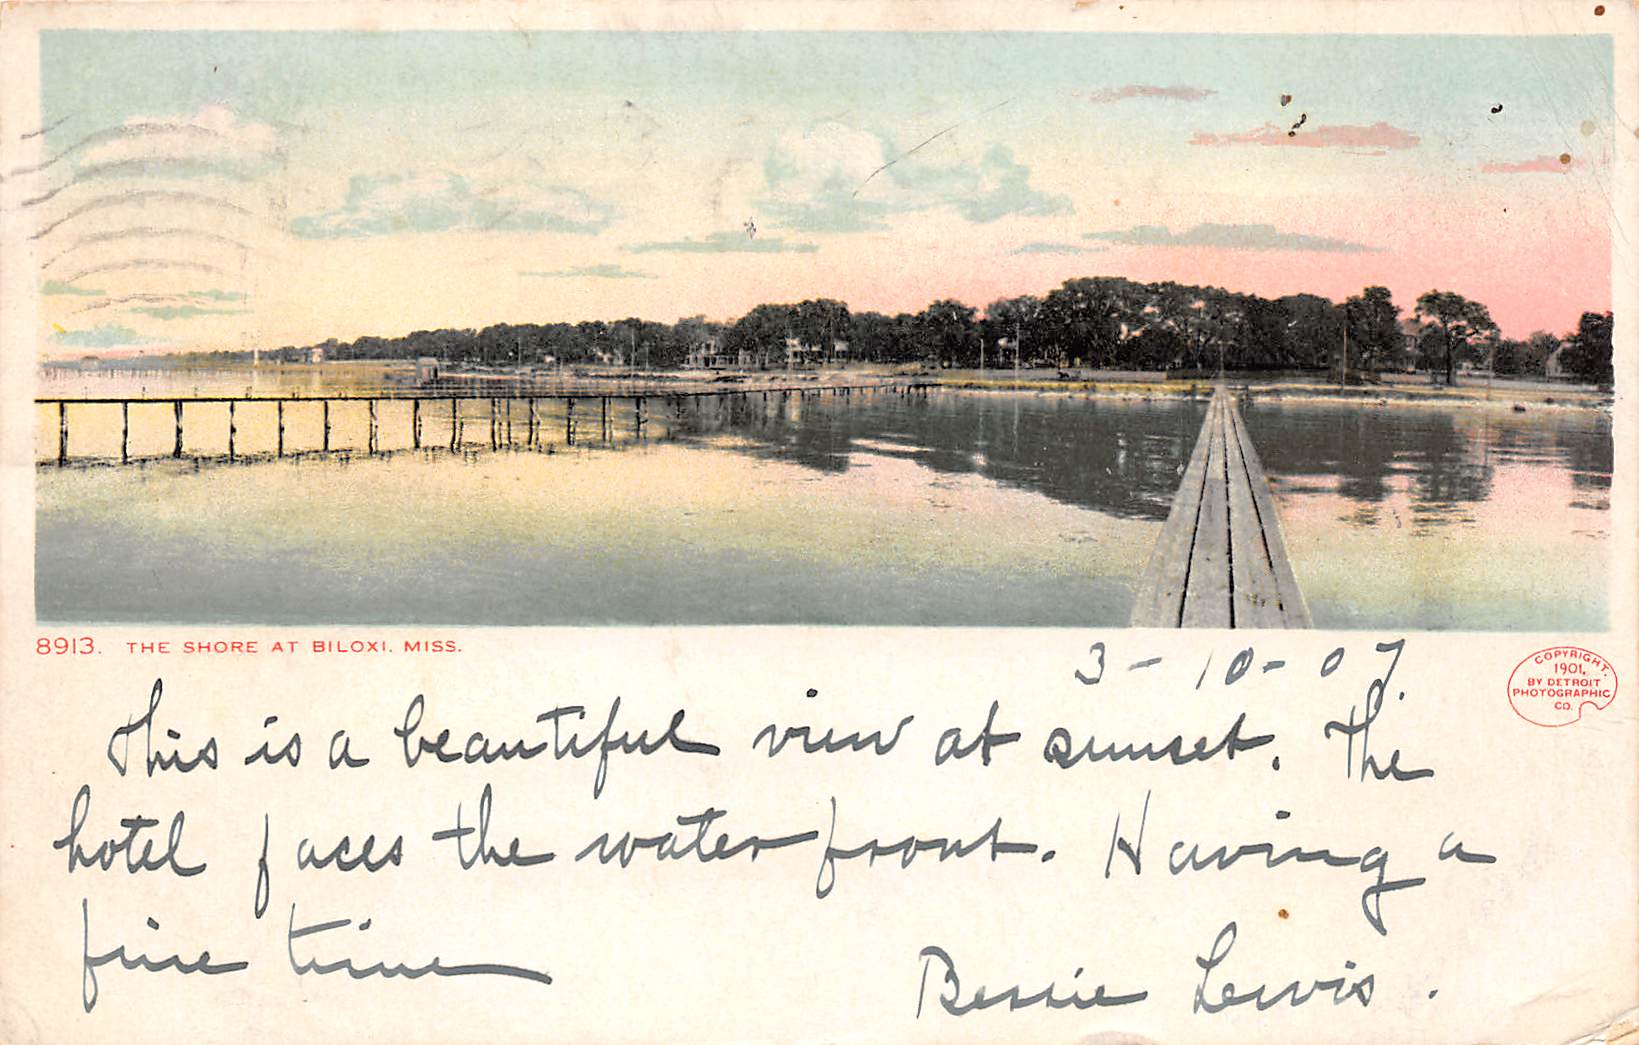 8913. THE SHORE AT BILOXI, MISS.
COPYRIGHT, 1901, BY DETROIT PHOTOGRAPHIC CO.
3-10-07.
This is a beautiful view at sunset. The
hotel faces the water front. Having a
fine time
Bessie Lewis.